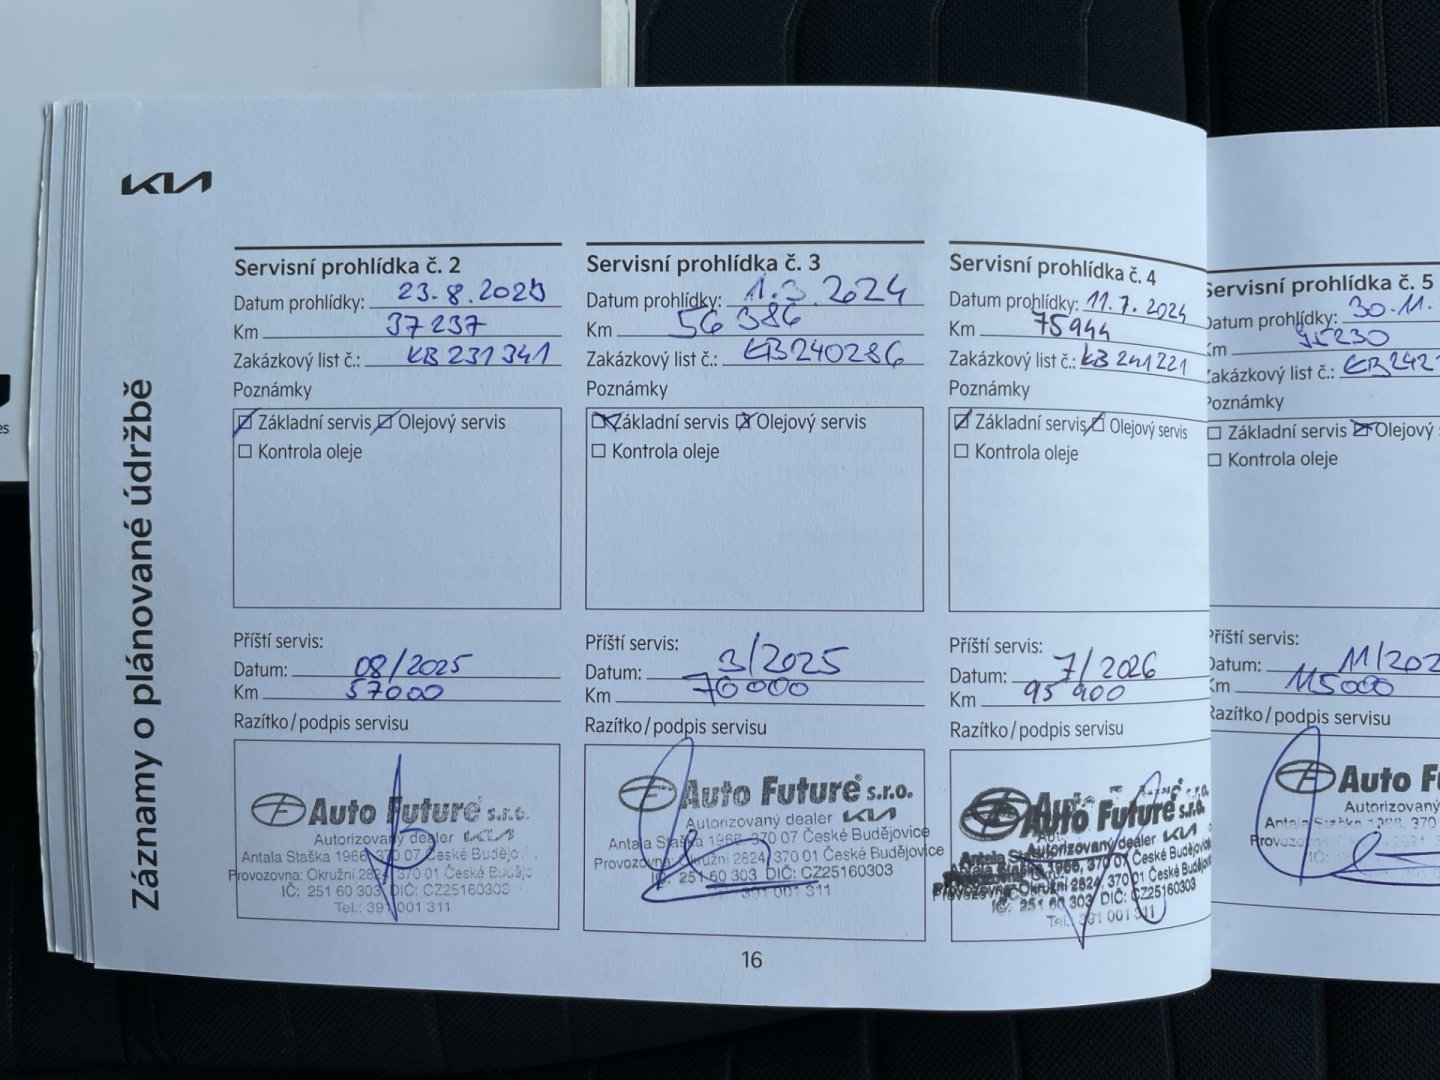 KIA
Záznamy o plánované údržbě
Servisní prohlídka č. 2
Datum prohlídky: 23.8.2023
Km 37237
Zakázkový list č.: KB231341
Poznámky
Základní servis Olejový servis
Kontrola oleje
Příští servis:
Datum: 08/2025
Km 57000
Razítko/podpis servisu
Auto Future s.r.o.
Autorizovaný dealer KIA
Antala Staška 1966, 370 07 České Budějo
Provozovna: Okružní 2824, 370 01 České Budějo
IČ: 251 60 303, DIČ: CZ25160303
Tel.: 391 001 311
Servisní prohlídka č. 3
Datum prohlídky: 1.3.2024
Km 56386
Zakázkový list č.: KB240286
Poznámky
Základní servis Olejový servis
Kontrola oleje
Příští servis:
Datum: 3/2025
Km 70000
Razítko/podpis servisu
Auto Future® s.r.o.
Autorizovaný dealer KIA
Antala Staška 1966, 370 07 České Budějovice
Provozovna: Okružní 2824, 370 01 České Budějovice
IČ: 251 60 303 DIČ: CZ25160303
391 001 311
Servisní prohlídka č. 4
Datum prohlídky: 11.7.2024
Km 75944
Zakázkový list č.: KB241221
Poznámky
Základní servis Olejový servis
Kontrola oleje
Příští servis:
Datum: 7/2026
Km 95900
Razítko/podpis servisu
Auto Future s.r.o.
Autorizovaný dealer KIA
Antala Staška 1966, 370 07 České Budějovice
Provozovna: Okružní 2824, 370 01 České Budějovice
IČ: 251 60 303 DIČ: CZ25160303
Tel.: 391 001 311
16
Servisní prohlídka č. 5
Datum prohlídky: 30.11.
Km 95230
Zakázkový list č.: KB242
Poznámky
Základní servis Olejový
Kontrola oleje
Příští servis:
Datum: 11/202
Km 115000
Razítko/podpis servisu
Auto F
Autorizovaný
Antala Staška